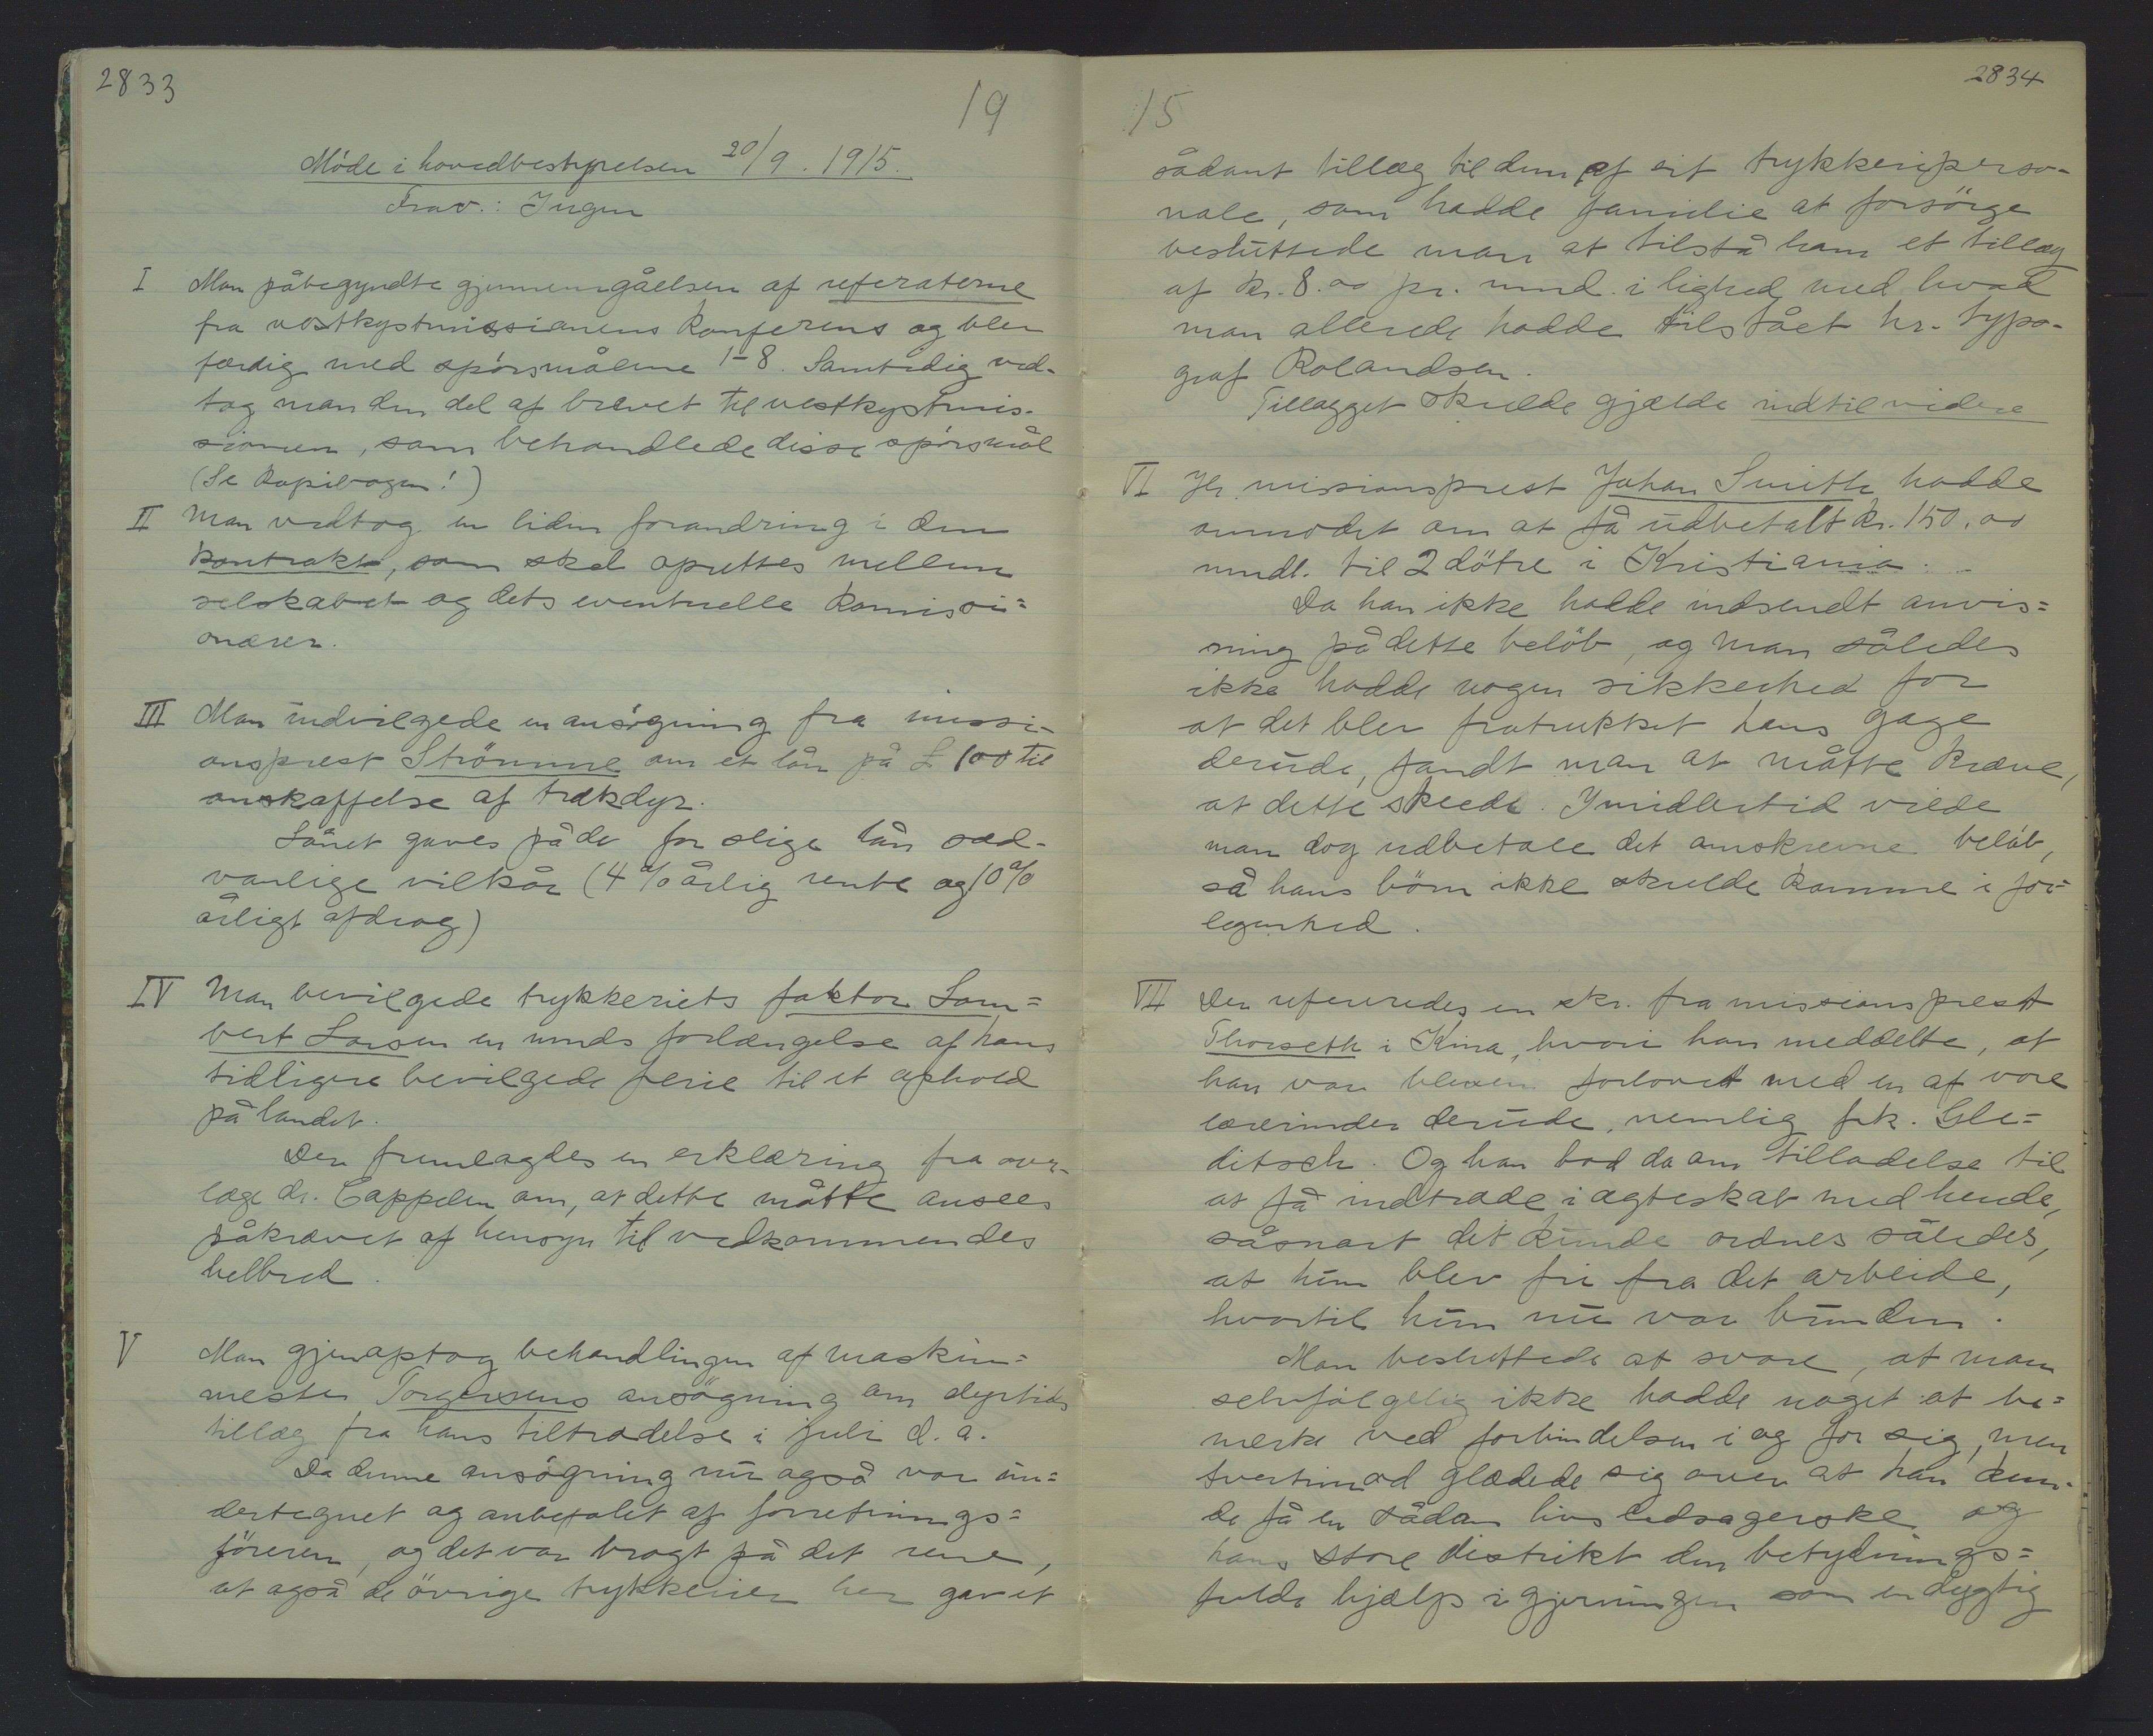 2833
19
Möde i hovedbestyrelsen 20/9. 1915.
Frav.: Ingen
I Man påbegyndte gjennemgåelsen af referaterne
fra vestkystmissionens konferens og blev
færdig med spörsmålene 1-8. Samtidig ved-
tog man den del af brevet til vestkystmis-
sionen, som behandlede disse spörsmål
(Se kopibogen!)
II Man vedtog en liden forandring i den
kontrakt, som skal oprettes mellem
selskabet og dets eventuelle komissi=
onærer.
III Man indvilgede en ansögning fra missi-
onsprest Strömme om et lån på £ 100 til
anskaffelse af trækdyr.
Lånet gaves på de for slige lån sæd-
vanlige vilkår (4 % årlig rente og 10 %
årligt afdrag)
IV Man bevilgede trykkeriets faktor Lam=
bert Larsen en mnds forlængelse af hans
tidligere bevilgede ferie til et ophold
på landet.
Der fremlagdes en erklæring fra over-
læge dr. Cappelen om, at dette måtte ansees
påkrævet af hensyn til vedkommendes
helbred.
V Man gjenoptog behandlingen af maskin=
mester Torgersens ansögning om dyrtids
tillæg fra hans tiltrædelse i juli d. a.
Da denne ansögning nu også var un=
dertegnet og anbefalet af forretnings=
föreren, og det var bragt på det rene,
at også de övrige trykkerier her gav et
15
2834
sådant tillæg til dem af sit trykkeriperso-
nale, som hadde familie at forsörge
besluttede man at tilstå ham et tillæg
af kr. 8.00 pr. mnd. i lighed med hvad
man allerede hadde tilstået hr. typo-
graf Rolandsen.
Tillægget skulde gjælde indtil videre
VI Hr. missionsprest Johan Smith hadde
anmodet om at få udbetalt kr. 150.00
mndl. til 2 dötre i Kristiania.
Da han ikke hadde indsendt anvis=
ning på dette belöb, og man således
ikke hadde nogen sikkerhed for
at det blev fratrukket hans gage
derude, fandt man at måtte kræve,
at dette skeede. Imidlertid vilde
man dog udbetale det omskrevne belöb,
så hans börn ikke skulde komme i for=
legenhed.
VII Der refereredes en skr. fra missionsprest
Thorseth i Kina, hvori han meddelte, at
han var bleven forlovet med en af vore
lærerinder derude, nemlig frk. Gle=
ditsch. Og han bad da om tilladelse til
at få indtræde i ægteskab med hende,
såsnart det kunde ordnes således,
at hun blev fri fra det arbeide,
hvortil hun nu var bunden.
Man besluttede at svare, at man
selvfölgelig ikke hadde noget at be=
merke ved forbindelsen i og for sig, men
tvertimod glædede sig over at han kun-
de få en sådan livsledsagerske og
hans store distrikt den betydnings=
fulde hjælp i gjerningen som en dygtig